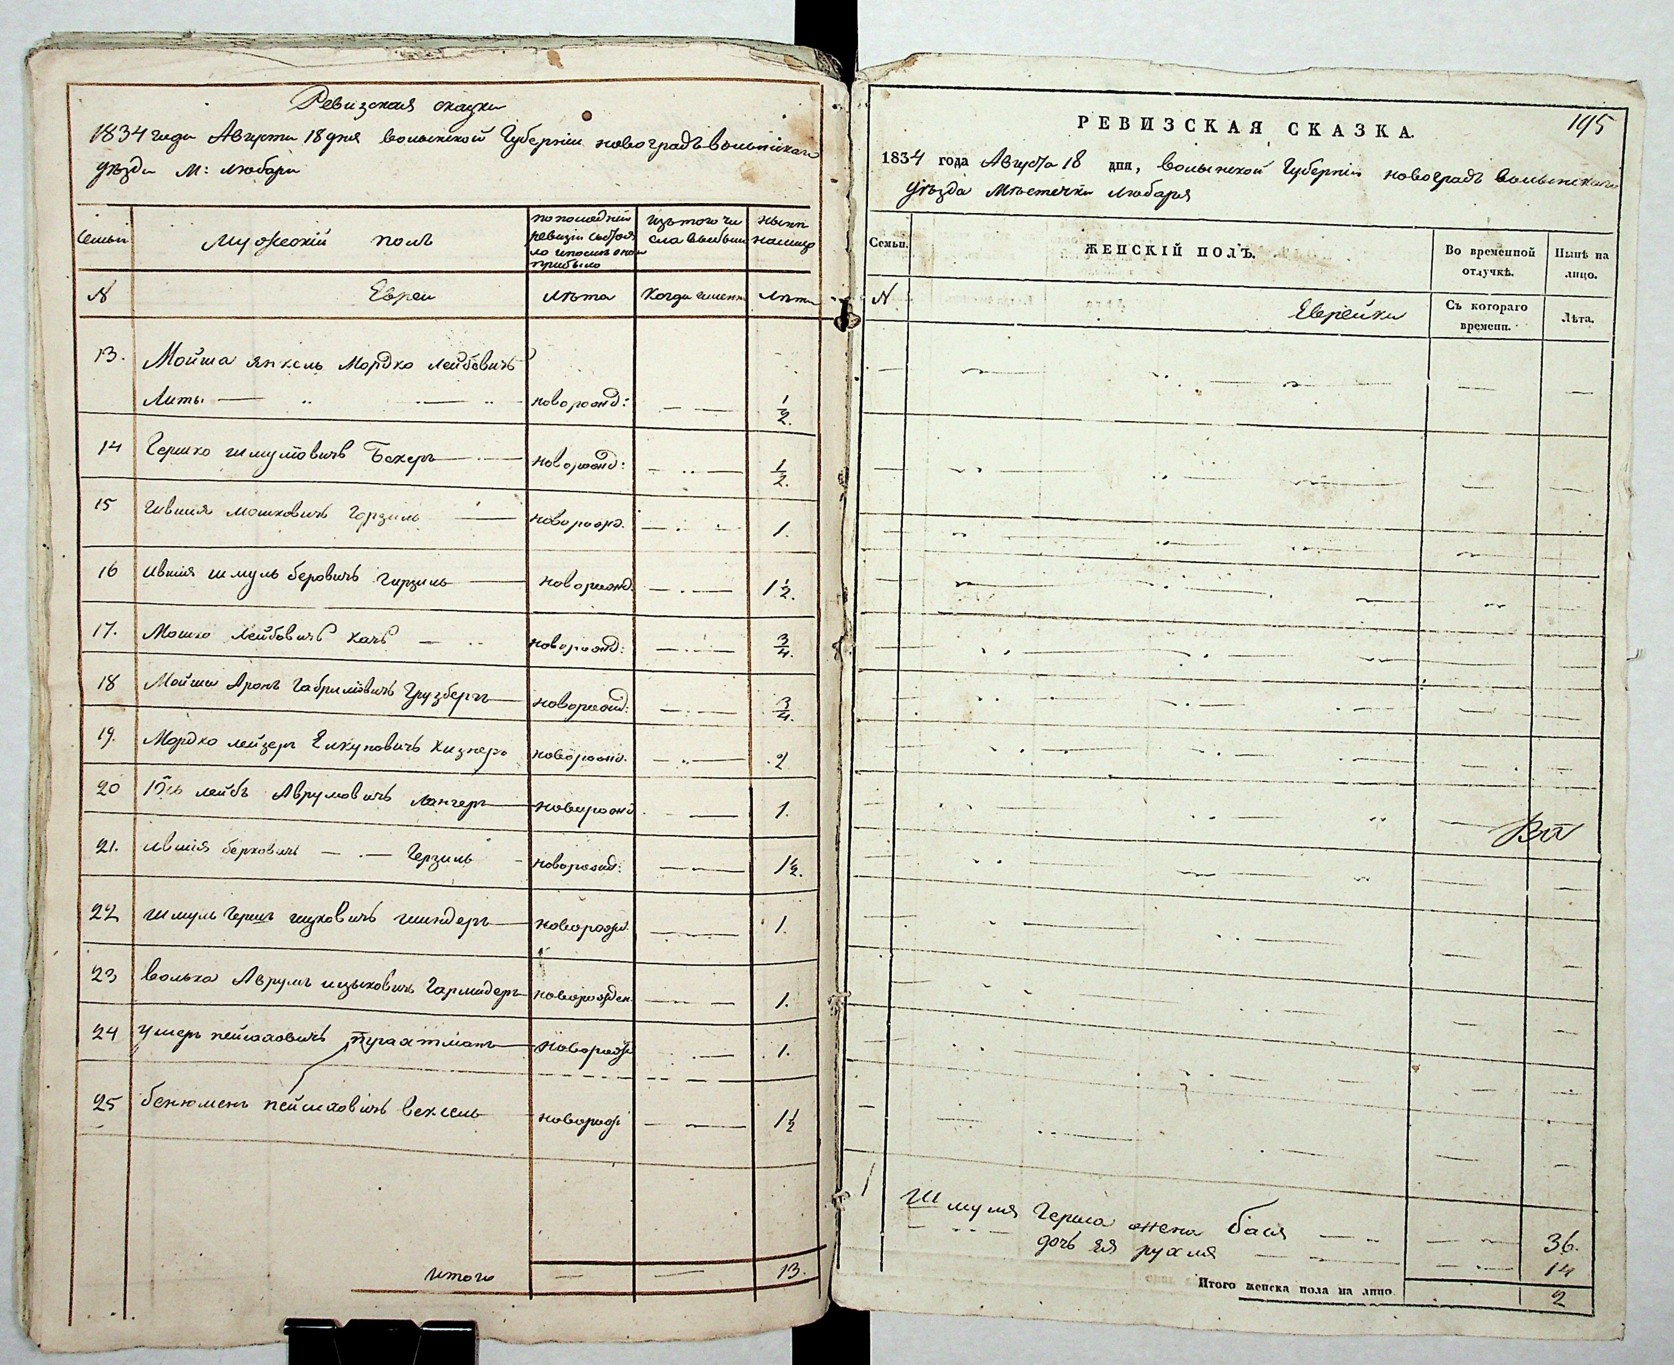 Ревизская сказка
1834 года Августа 18 дня волынской Губерніи новоградъ волынскаго
уѣзда М: Любара
Семьи
Мужескій полъ
по последней ревизіи состояло и после оной прибыло
изъ того числа выбыло
ныне налицо
N
Евреи
Лѣта
Когда именно
Лѣта
13. Мойша янкель Мордко лейбовичъ
Литы новорожд: 1/2.
14 Гершко шмулiовичъ Бекеръ новорожд: 1/2.
15 мошковичъ новорожд. 1.
16 ившія шмуль беровичъ новорожд. 1 1/2.
17. Мошко лейбовичъ Кацъ новорожд: 3/4.
18 Мойша Аронъ Габриловичъ Грузбергъ новорожд: 3/4.
19. Мордко лейзеръ новорожд. 2
20 лейбъ Аврумовичъ Лангеръ новорожд 1.
21. ившія берковичъ Герзиль новорожд: 1 1/2.
22 шмуль Гершъ ицковичъ шиндеръ новорожд. 1.
23 волько Аврумъ ицьковичъ новорожден. 1.
24 Ушеръ пейсаховичъ новорожд 1.
25 бенюменъ пейсаховичъ вексель новорожд 1 1/2
итого 13.
195
РЕВИЗСКАЯ СКАЗКА.
1834 года Августа 18 дня, волынской Губерніи новоградъ волынскаго
уѣзда Мѣстечка Любара
Семьи.
ЖЕНСКІЙ ПОЛЪ.
Во временной отлучкѣ.
Нынѣ на лицо.
N
Еврейки
Съ котораго времени.
Лѣта.
Шмуля Герша жена бася 36.
дочь ея рухля 14
Итого женска пола на лицо 2